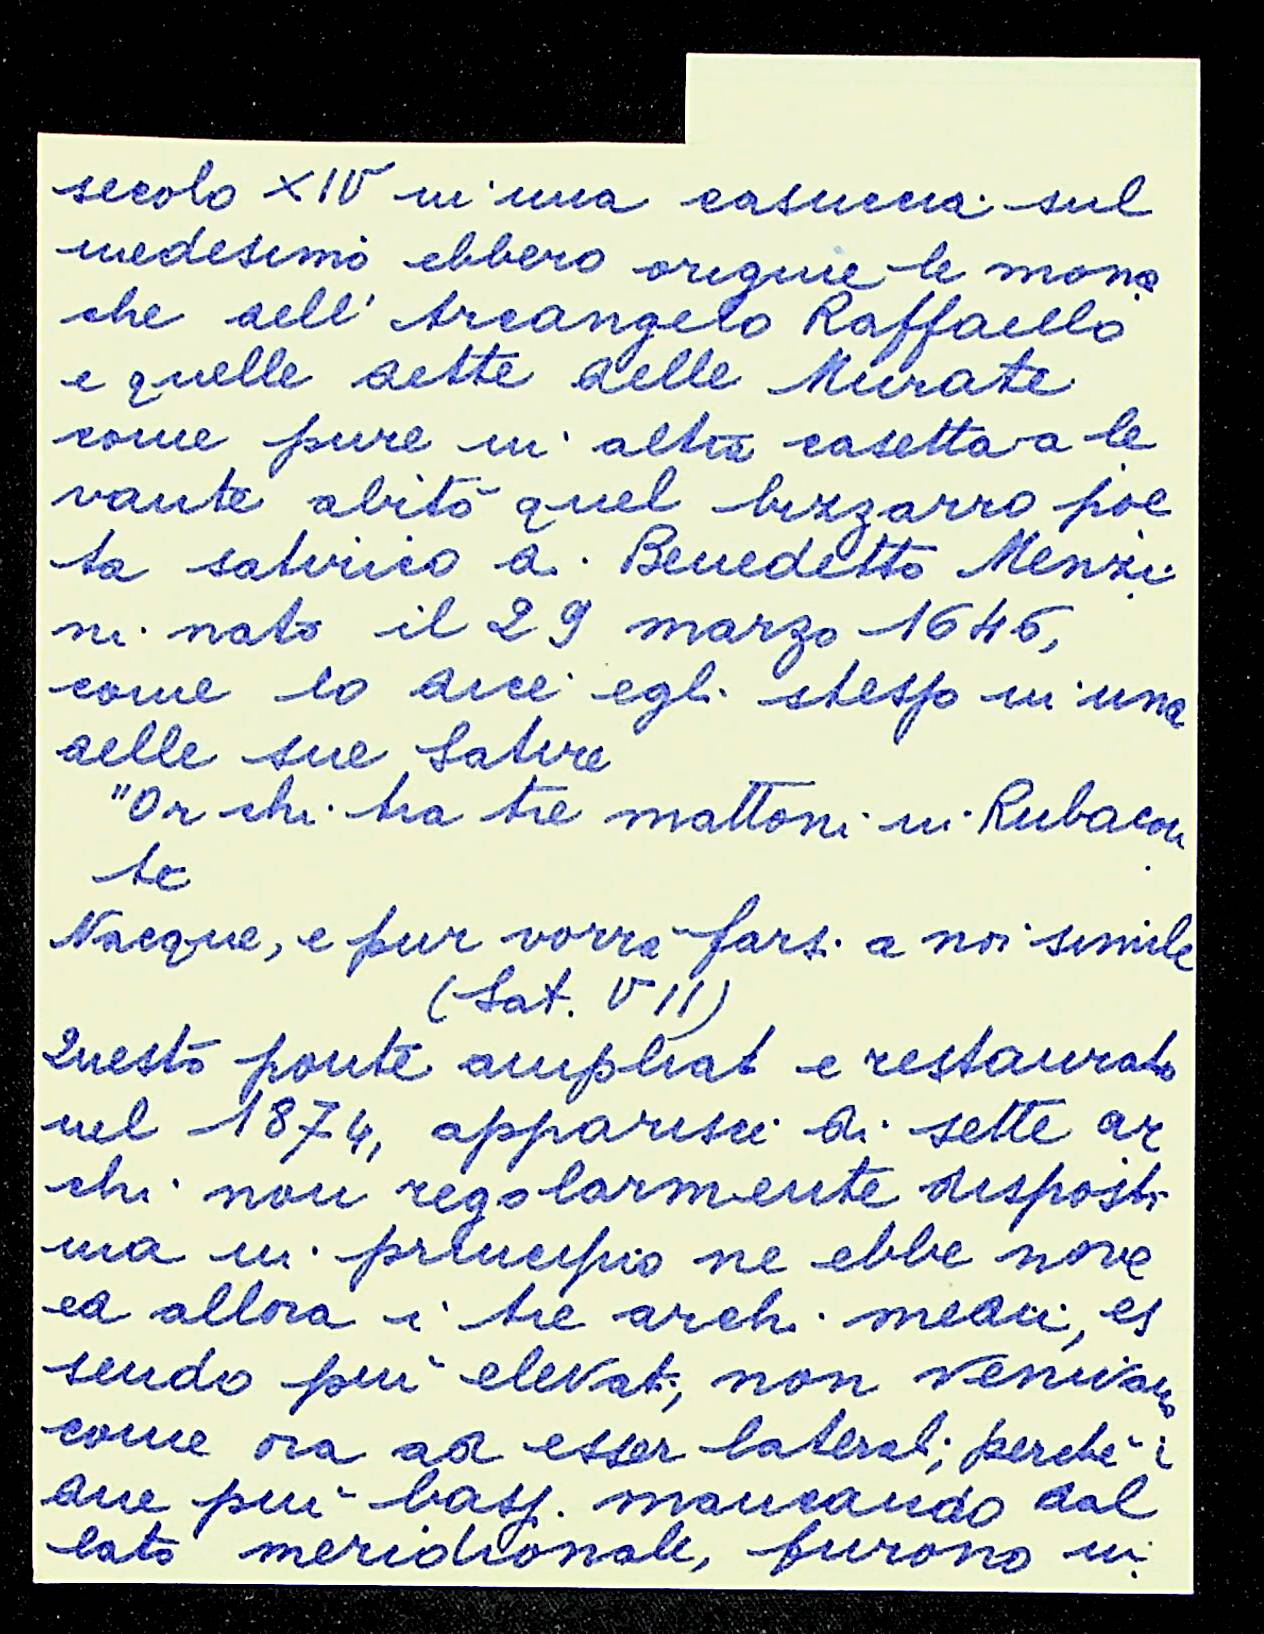 secolo XIV in una casuccia sul
medesimo ebbero origine le mona
che dell' Arcangelo Raffaello
e quelle dette delle Murate
come pure in altra casetta a le
vante abitò quel bizzarro poe
ta satirico di Benedetto Menzi
ni nato il 29 marzo 1646,
come lo dice egli stesso in una
delle sue Satire
"Or chi tra tre mattoni in Rubacon
te
Nacque, e pur vorrà farsi a noi simile
(Sat. VII)
Questo ponte ampliat e restaurato
nel 1874, apparisce di sette ar
chi non regolarmente disposti
ma in principio ne ebbe nove
ed allora i tre archi medii, es
sendo più elevati, non venivano
come ora ad esser laterali; perchè i
due più bassi mancando dal
lato meridionale, furono in